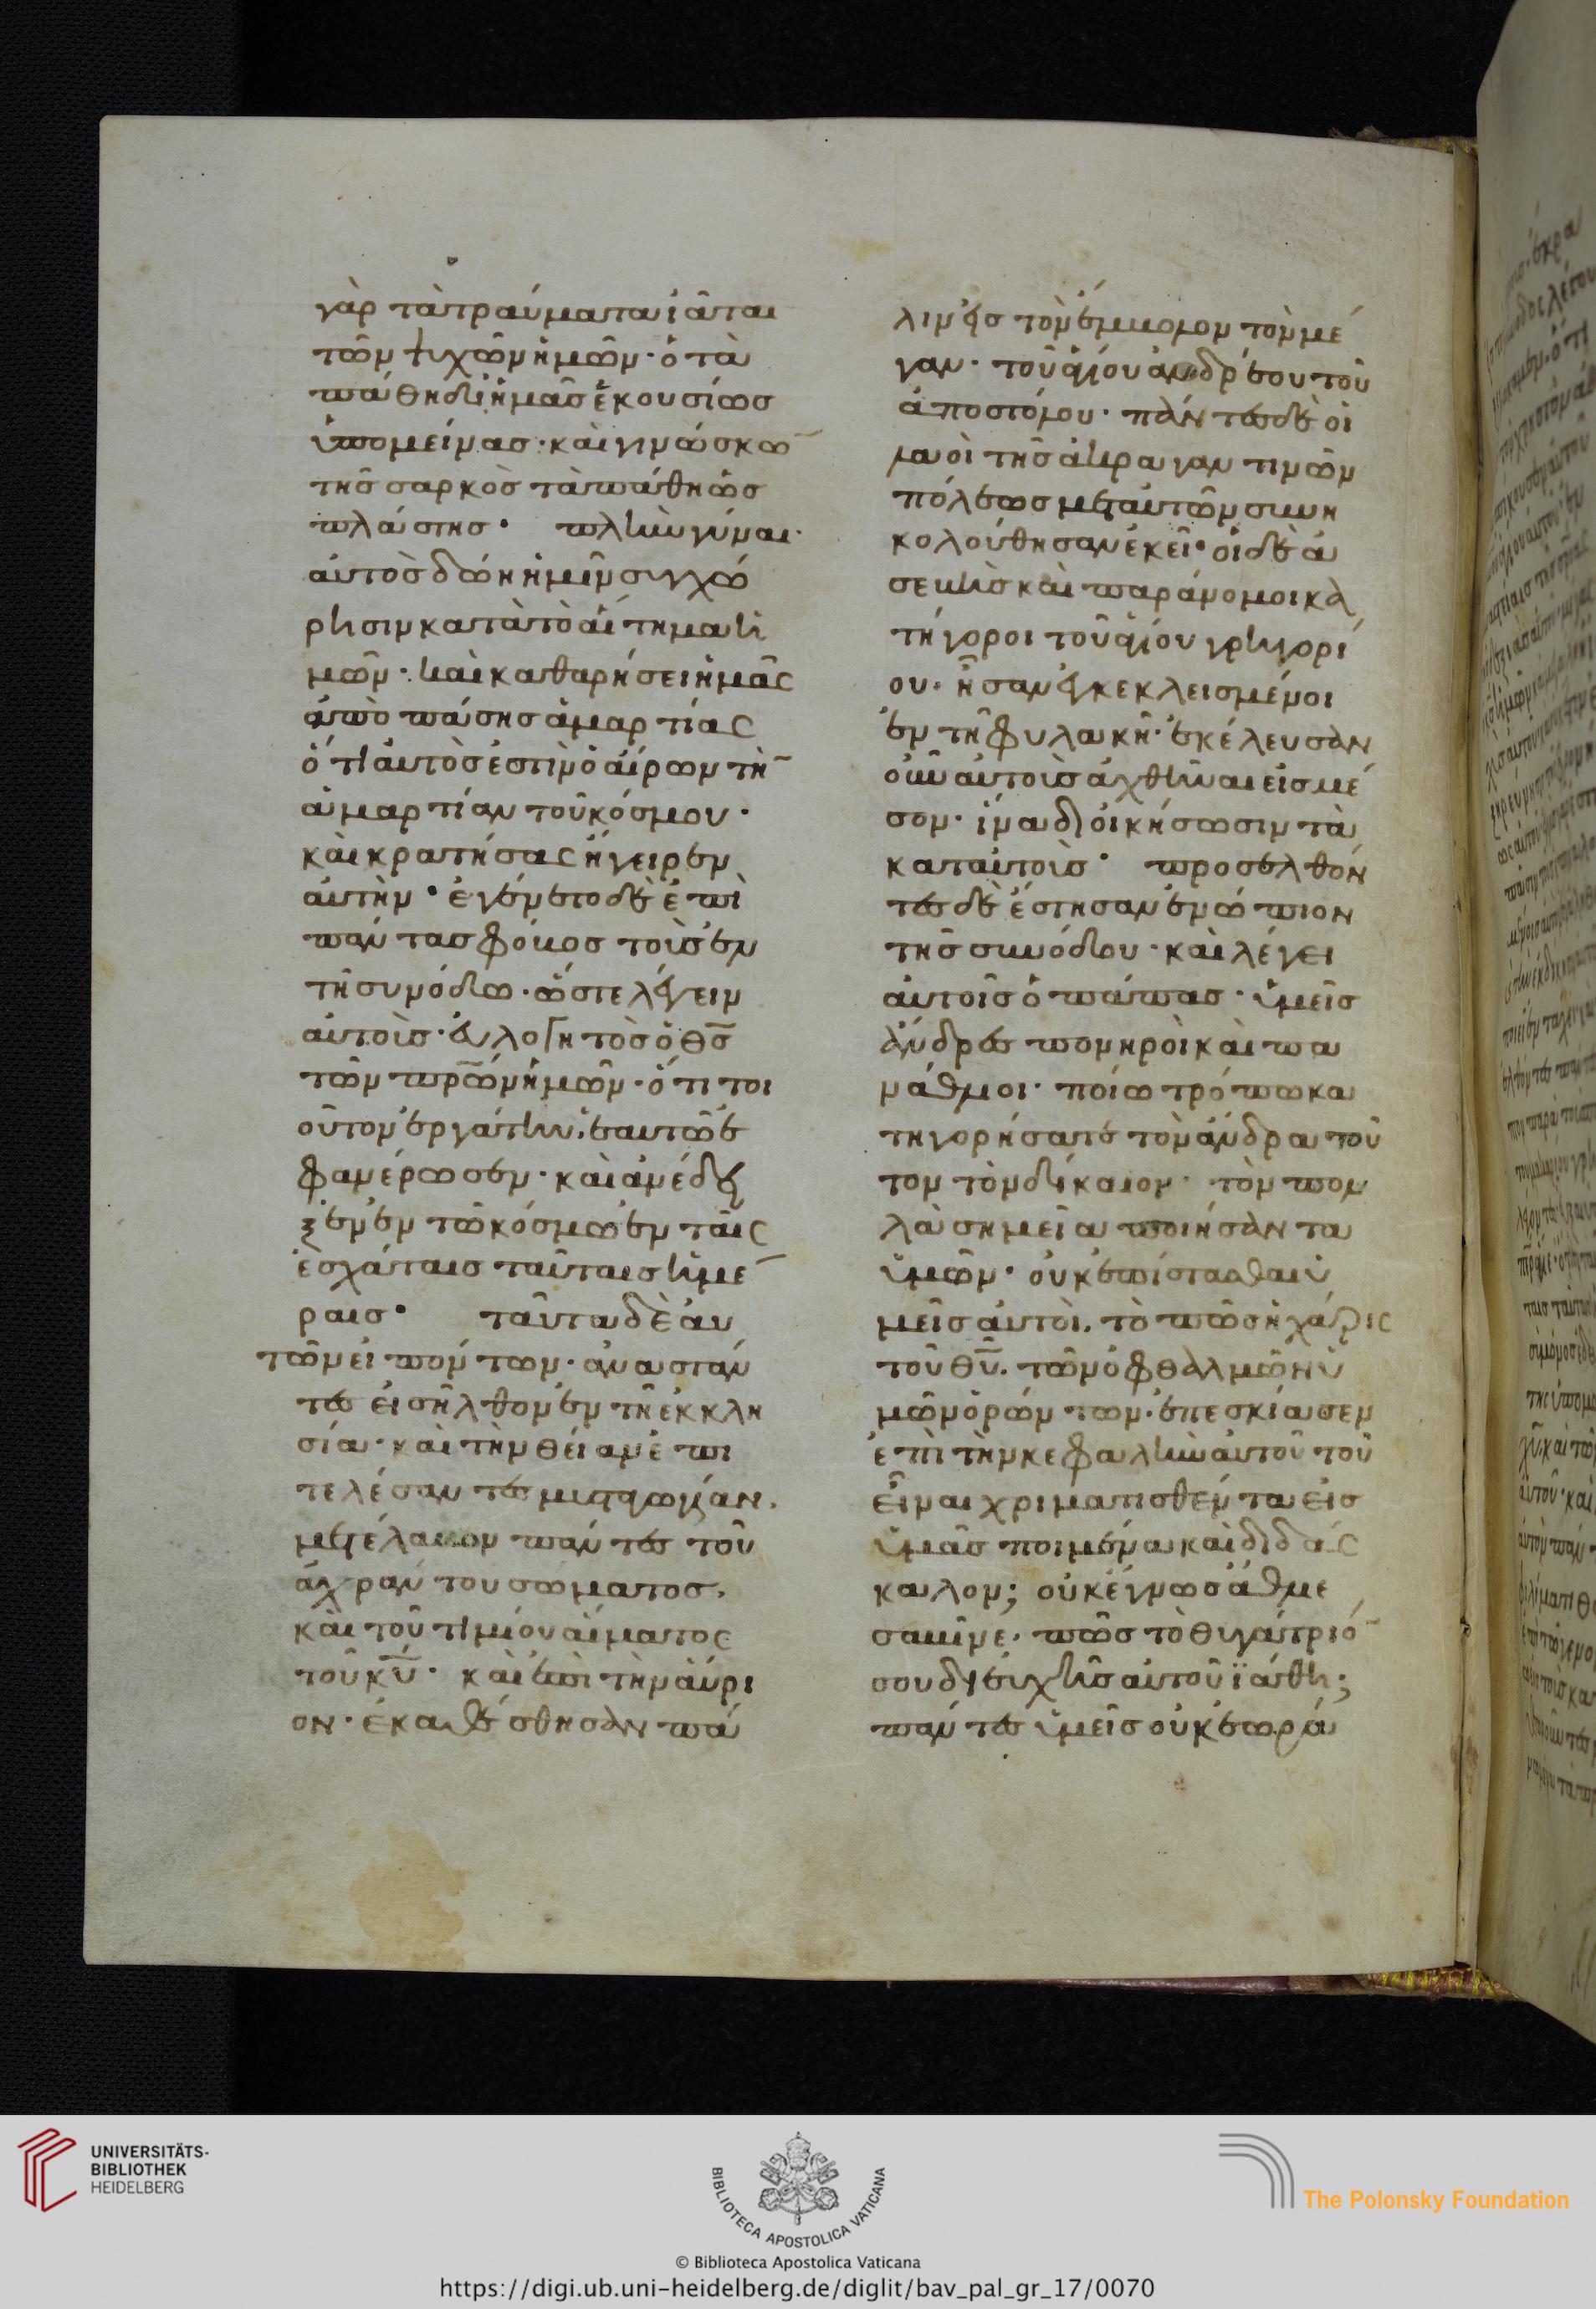 γὰρ τὰ τραύματα ἰᾶται
τῶν ψυχῶν ἡμῶν· ὁ τὰ
πάθη δι ἡμᾶς ἑκουσίως
ὑπομείνας· καὶ γινώσκω
τῆς σαρκὸς τὰ πάθη ὡς
πλάστης· πλὴν γύναι·
αὐτὸς δώη ἡμῖν συγχώ
ρησιν κατὰ τὸ αἴτημα ἡ
μῶν· καὶ καθαρήσει ἡμᾶς
ἀπὸ πάσης ἁμαρτίας
ὅτι αὐτὸς ἐστὶν ὁ αἴρων τὴ
ἁμαρτίαν τοῦ κόσμου·
καὶ κρατήσας ἤγειρεν
αὐτὴν· ἐγένετο δὲ ἐπὶ
πάντας φόβος τοῖς ἐν
τῇ συνόδω· ὥστε λέγειν
αὐτοῖς· εὐλογητὸς ὁ θς
τῶν πρων ἡμῶν· ὅτι τοι
οῦτον ἐργάτην, ἑαυτῶ ἐ
φανέρωσεν· καὶ ἀνέδει
ξεν ἐν τῶ κόσμω ἐν ταῖς
ἐσχάταις ταύταις ἡμέ
ραις· ταῦτα δὲ αὐ
τῶν εἰπόντων· ἀναστάν
τες εἰσῆλθον ἐν τῇ ἐκκλη
σία· καὶ τὴν θείαν ἐπι
τελέσαντες μυσταγωγίαν.
μετέλαβον πάντες τοῦ
ἀχράντου σώματος,
καὶ τοῦ τιμίου αἵματος
τοῦ κυ· καὶ ἐπὶ τὴν αὔρι
ον· ἐκαθέσθησαν πά
λιν εἰς τὸν ἔμβολον τὸν μέ
γαν· τοῦ ἁγίου ἀνδρέου τοῦ
ἀποστόλου· πάντες δὲ οἱ
λαοὶ τῆς ἀκραγαντινῶν
πόλεως μετ αὐτῶν συνη
κολούθησαν ἐκεῖ· οἱ δὲ ἀ
σεβεῖς καὶ παράνομοι κα
τήγοροι τοῦ ἁγίου γρηγορί
ου· ἦσαν ἐγκεκλεισμένοι
ἐν τῇ φυλακῇ· ἐκέλευσαν
οὖν αὐτοὺς ἀχθῆναι εἰς μέ
σον· ἵνα διοικήσωσιν τὰ
κατ αὐτοὺς· προσελθόν
τες δὲ ἔστησαν ἐνώπιον
τῆς συνόδου· καὶ λέγει
αὐτοῖς ὁ πάπας· ὑμεῖς
ἄνδρες πονηροὶ καὶ πα
νάθλιοι· ποίω τρόπω κα
τηγορήσατε τὸν ἄνδρα τοῦ
τον τὸν δίκαιον· τὸν πολ
λὰ σημεῖα ποιήσαντα
ὑμῶν· οὐκ ἐπίστασθαι ὑ
μεῖς αὐτοὶ, τὸ πῶς ἡ χάρις
τοῦ θυ. τῶν ὀφθαλμῶν ὑ
μῶν ὁρώντων· ἐπεσκίασεν
ἐπὶ τὴν κεφαλὴν αὐτοῦ τοῦ
εἶναι χριματισθέντα εἰς
ὑμᾶς ποιμένα καὶ διδάς
καλον; οὐκ ἔγνως ἄθλιε
σαβῖνε· πῶς τὸ θυγάτριό
σου δι εὐχῆς αὐτοῦ ϊάθη;
πάντες ὑμεῖς οὐκ ἑωρά
UNIVERSITÄTS-
BIBLIOTHEK
HEIDELBERG
BIBLIOTECA APOSTOLICA VATICANA
The Polonsky Foundation
© Biblioteca Apostolica Vaticana
https://digi.ub.uni-heidelberg.de/diglit/bav_pal_gr_17/0070